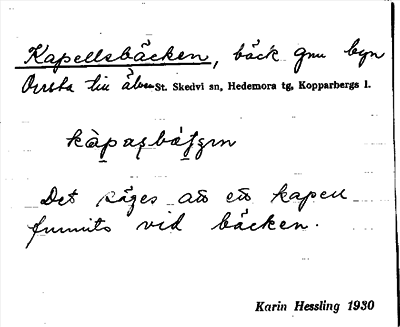 Kapellsbäcken, bäck gnm byn
Orrsta till älven St. Skedvi sn, Hedemora tg, Kopparbergs l.
Det säges att ett kapell
funnits vid bäcken.
Karin Hessling 1930